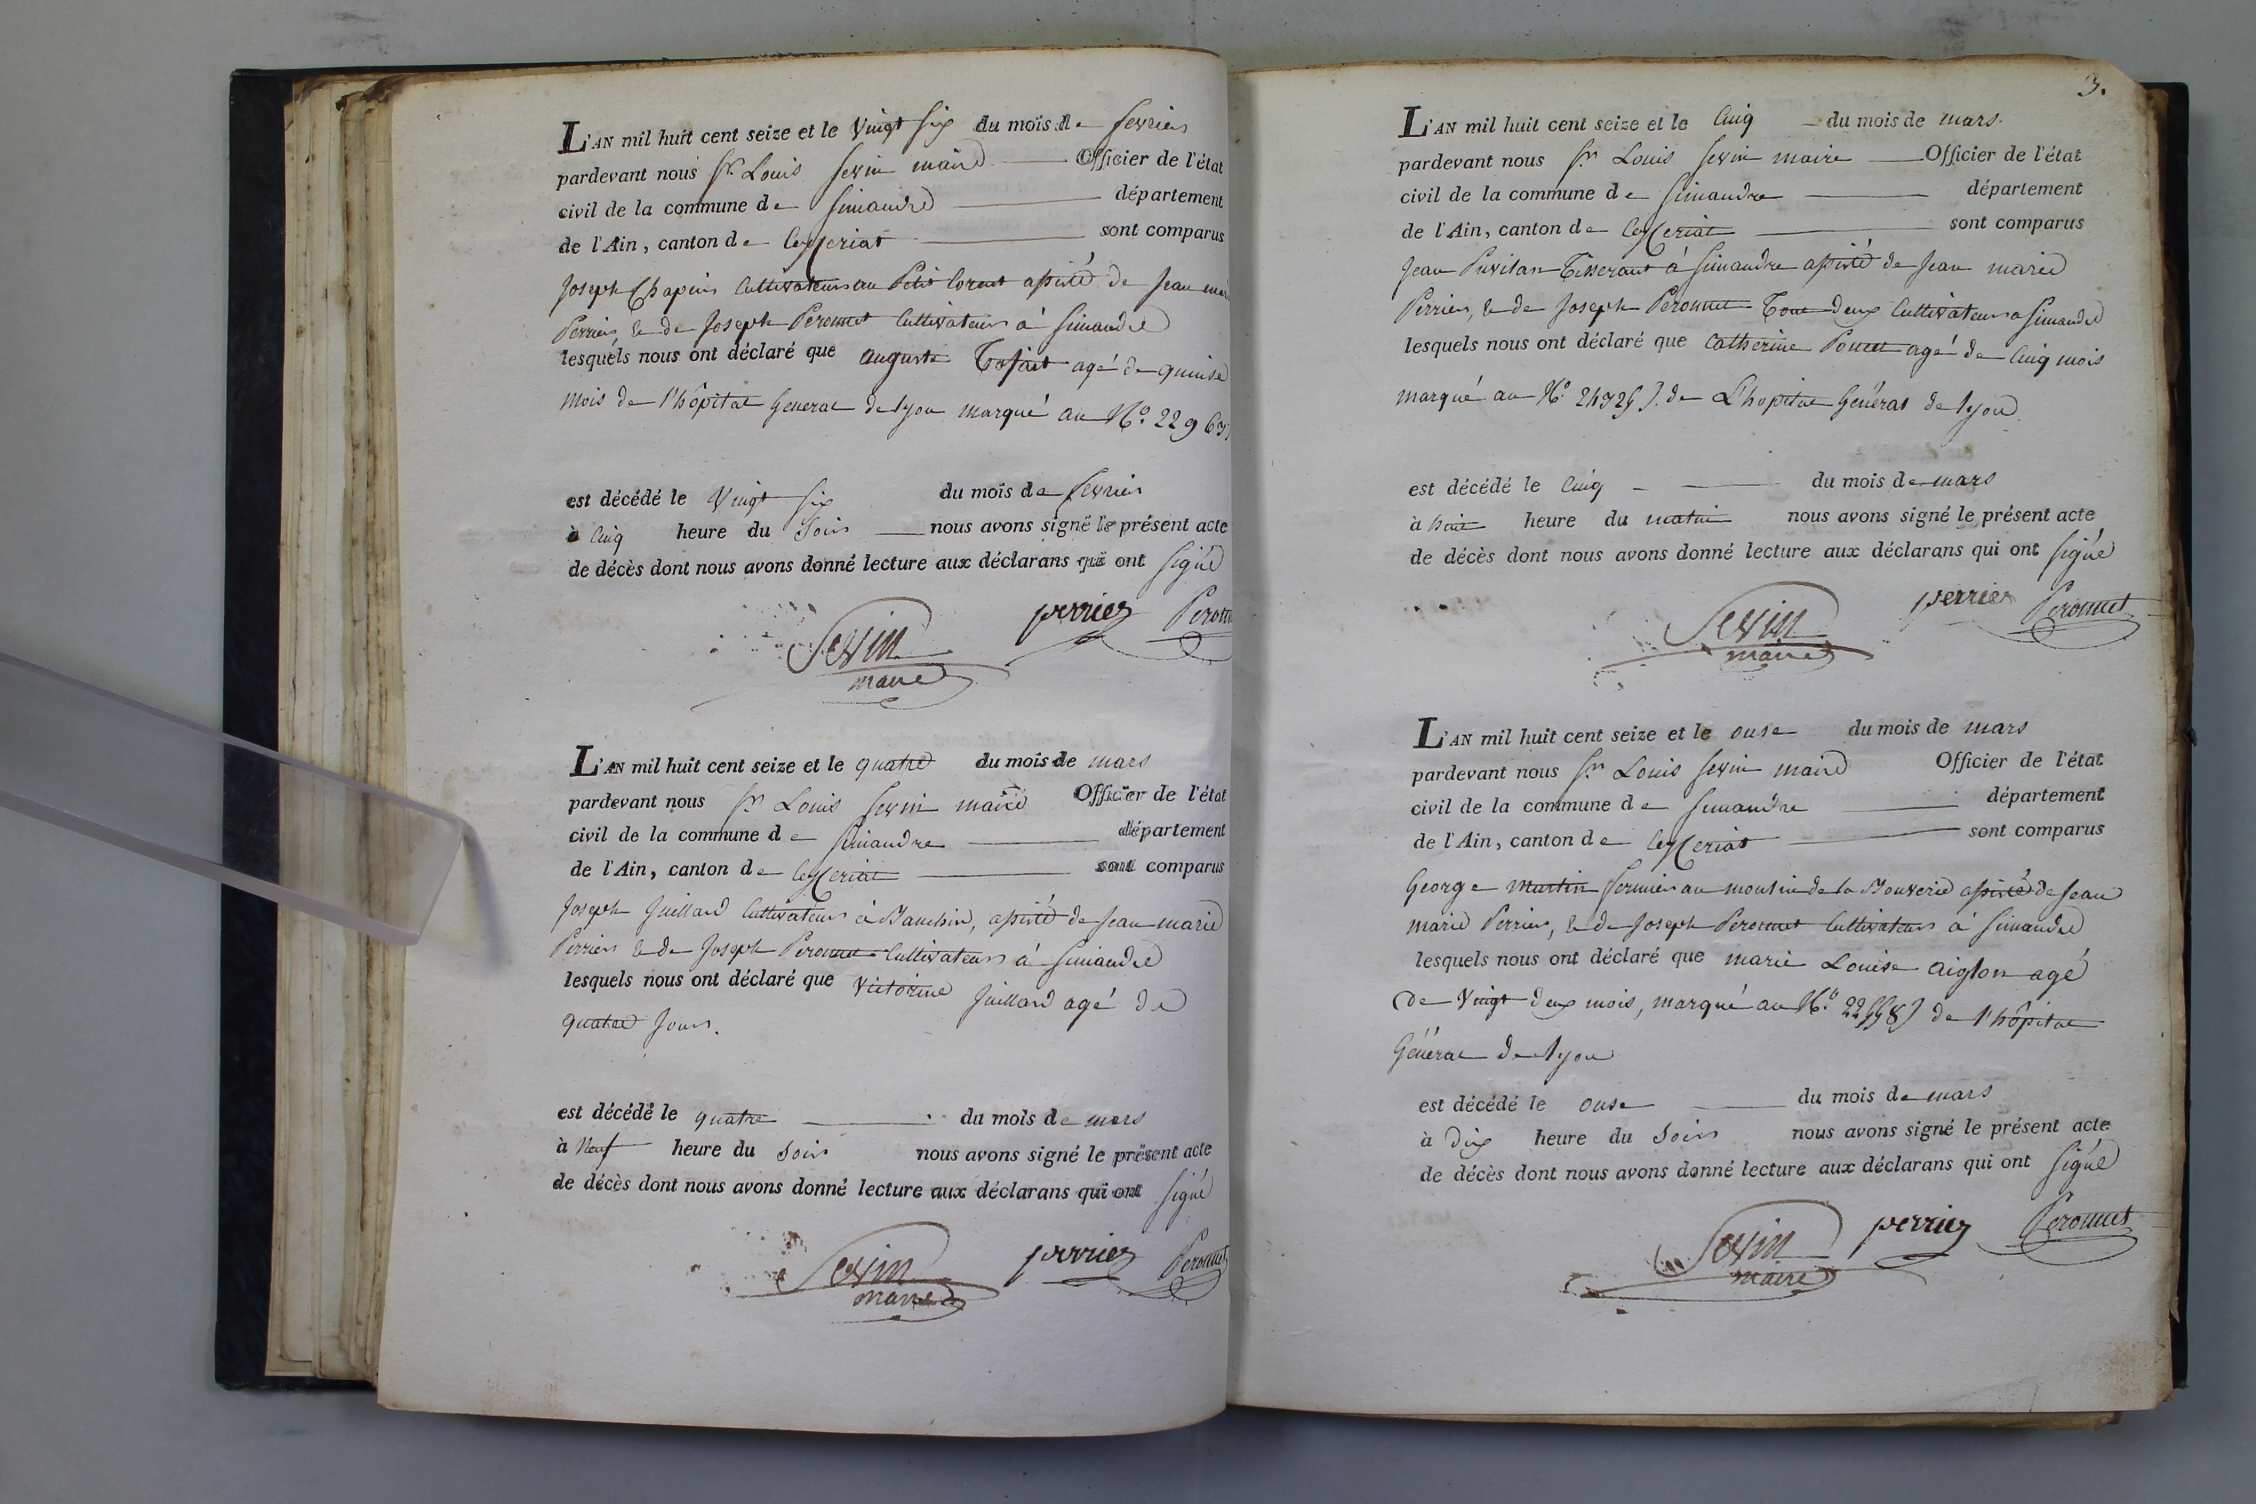 L'AN mil huit cent seize et le Vingt six du mois de fevrier
pardevant nous Sr Louis Sevin maire Officier de l'état
civil de la commune de Simandre département
de l'Ain, canton de Ceyzeriat sont comparus
Joseph Chapuis Cultivateur au Petit Corent assisté de Jean marie
Perrier, & de Joseph Peronnet Cultivateurs à Simandre
lesquels nous ont déclaré que auguste agé de quinse
mois de l'hôpital General de lyon marqué au No. 22963
est décédé le Vingt six du mois de fevrier
à Cinq heure du Soir nous avons signé le présent acte
de décès dont nous avons donné lecture aux déclarans qui ont signé
Sevin perrier
maire
L'AN mil huit cent seize et le quatre du mois de mars
pardevant nous Sr Louis Sevin maire Officier de l'état
civil de la commune de Simandre département
de l'Ain, canton de Ceyzeriat sont comparus
Joseph Juillard Cultivateur à assisté de Jean marie
Perrier & de Joseph Peronnet Cultivateurs à Simandre
lesquels nous ont déclaré que Victorine Juillard agé de
quatre Jours.
est décédé le quatre du mois de mars
à Neuf heure du Soir nous avons signé le présent acte
de décès dont nous avons donné lecture aux déclarans qui ont signé
Sevin perrier Peronnet
maire
3.
L'AN mil huit cent seize et le Cinq du mois de mars.
pardevant nous Sr Louis Sevin maire Officier de l'état
civil de la commune de Simandre département
de l'Ain, canton de Ceyzeriat sont comparus
Jean Puvilan Tisserant à Simandre assisté de Jean marie
Perrier, & de Joseph Peronnet Tous deux Cultivateurs a Simandre
lesquels nous ont déclaré que Catherine agé de Cinq mois
marqué au No. de L'hopital Général de lyon
est décédé le Cinq du mois de mars
à heure du matin nous avons signé le présent acte
de décès dont nous avons donné lecture aux déclarans qui ont signé
Sevin perrier Peronnet
maire
L'AN mil huit cent seize et le onse du mois de mars
pardevant nous Sr Louis Sevin maire Officier de l'état
civil de la commune de Simandre département
de l'Ain, canton de Ceyzeriat sont comparus
George Martin fermier au moulin de la assisté de Jean
marie Perrier, & de Joseph Peronnet Cultivateurs à Simandre
lesquels nous ont déclaré que marie Louise aiglon agé
de Vingt deux mois, marqué au No. de l'hôpital
Général de lyon
est décédé le onse du mois de mars
à Dix heure du Soir nous avons signé le présent acte
de décès dont nous avons donné lecture aux déclarans qui ont signé
Sevin perrier Peronnet
maire